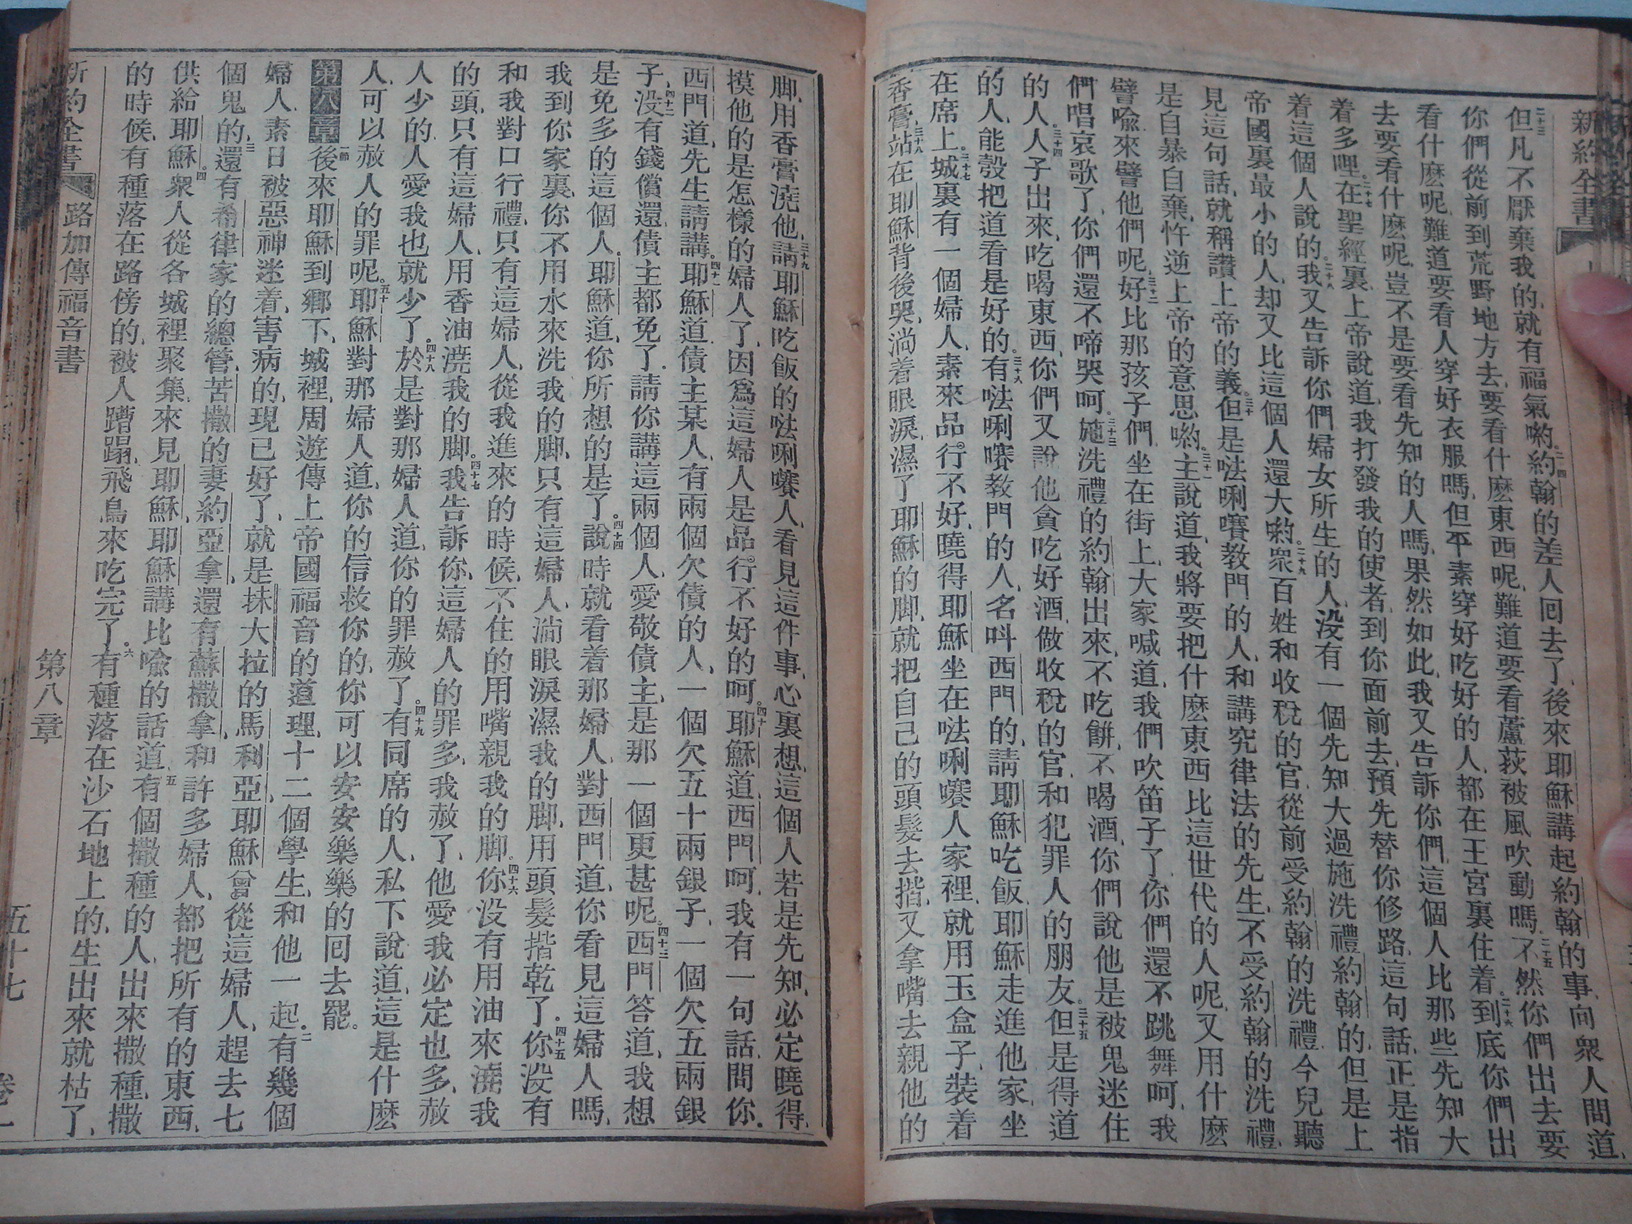 新約全書
但凡不厭棄我的就有福氣喲約翰的差人回去了後來耶穌講起約翰的事向衆人問道
你們從前到荒野地方去要看什麽東西呢難道要看蘆荻被風吹動嗎不然你們出去要
看什麽呢難道要看人穿好衣服嗎但平素穿好吃好的人都在王宮裏住着到底你們出
去要看什麽呢豈不是要看先知的人嗎果然如此我又告訴你們這個人比那些先知大
着多哩在聖經裏上帝說道我打發我的使者到你面前去預先替你修路這句話正是指
着這個人說的我又告訴你們婦女所生的人沒有一個先知大過施洗禮約翰的但是上
帝國裏最小的人却又比這個人還大喲衆百姓和收稅的官從前受約翰的洗禮今兒聽
見這句話就稱讚上帝的義但是𠵽唎㘔教門的人和講究律法的先生不受約翰的洗禮
是自暴自棄忤逆上帝的意思喲主說道我將要把什麽東西比這世代的人呢又用什麽
譬喩來譬他們呢好比那孩子們坐在街上大家喊道我們吹笛子了你們還不跳舞呵我
們唱哀歌了你們還不啼哭呵施洗禮的約翰出來不吃餅不喝酒你們說他是被鬼迷住
的人人子出來吃喝東西你們又說他貪吃好酒做收稅的官和犯罪人的朋友但是得道
的人能彀把道看是好的有𠵽唎㘔教門的人名呌西門的請耶穌吃飯耶穌走進他家坐
在席上城裏有一個婦人素來品行不好曉得耶穌坐在𠵽唎㘔人家裡就用玉盒子裝着
香膏站在耶穌背後哭淌着眼淚濕了耶穌的脚就把自己的頭髮去揩又拿嘴去親他的
脚用香膏澆他請耶穌吃飯的𠵽唎㘔人看見這件事心裏想這個人若是先知必定曉得
摸他的是怎樣的婦人了因爲這婦人是品行不好的呵耶穌道西門呵我有一句話問你
西門道先生請講耶穌道債主某人有兩個欠債的人一個欠五十兩銀子一個欠五兩銀
子沒有錢償還債主都免了請你講這兩個人愛敬債主是那一個更甚呢西門答道我想
是免多的這個人耶穌道你所想的是了說時就看着那婦人對西門道你看見這婦人嗎
我到你家裏你不用水來洗我的脚只有這婦人淌眼淚濕我的脚用頭髮揩乾了你沒有
和我對口行禮只有這婦人從我進來的時候不住的用嘴親我的脚你沒有用油來澆我
的頭只有這婦人用香油澆我的脚我告訴你這婦人的罪多我赦了他愛我必定也多赦
人少的人愛我也就少了於是對那婦人道你的罪赦了有同席的人私下說道這是什麽
人可以赦人的罪呢耶穌對那婦人道你的信救你的你可以安安樂樂的回去罷
第八章後來耶穌到鄉下城裡周遊傳上帝國福音的道理十二個學生和他一起有幾個
婦人素日被惡神迷着害病的現已好了就是抹大拉的馬利亞耶穌曾從這婦人趕去七
個鬼的還有希律家的總管苦撒的妻約亞拿還有蘇撒拿和許多婦人都把所有的東西
供給耶穌衆人從各城裡聚集來見耶穌耶穌講比喩的話道有個撒種的人出來撒種撒
的時候有種落在路傍的被人蹧蹋飛鳥來吃完了有種落在沙石地上的生出來就枯了
新約全書 路加傳福音書 第八章 五十七